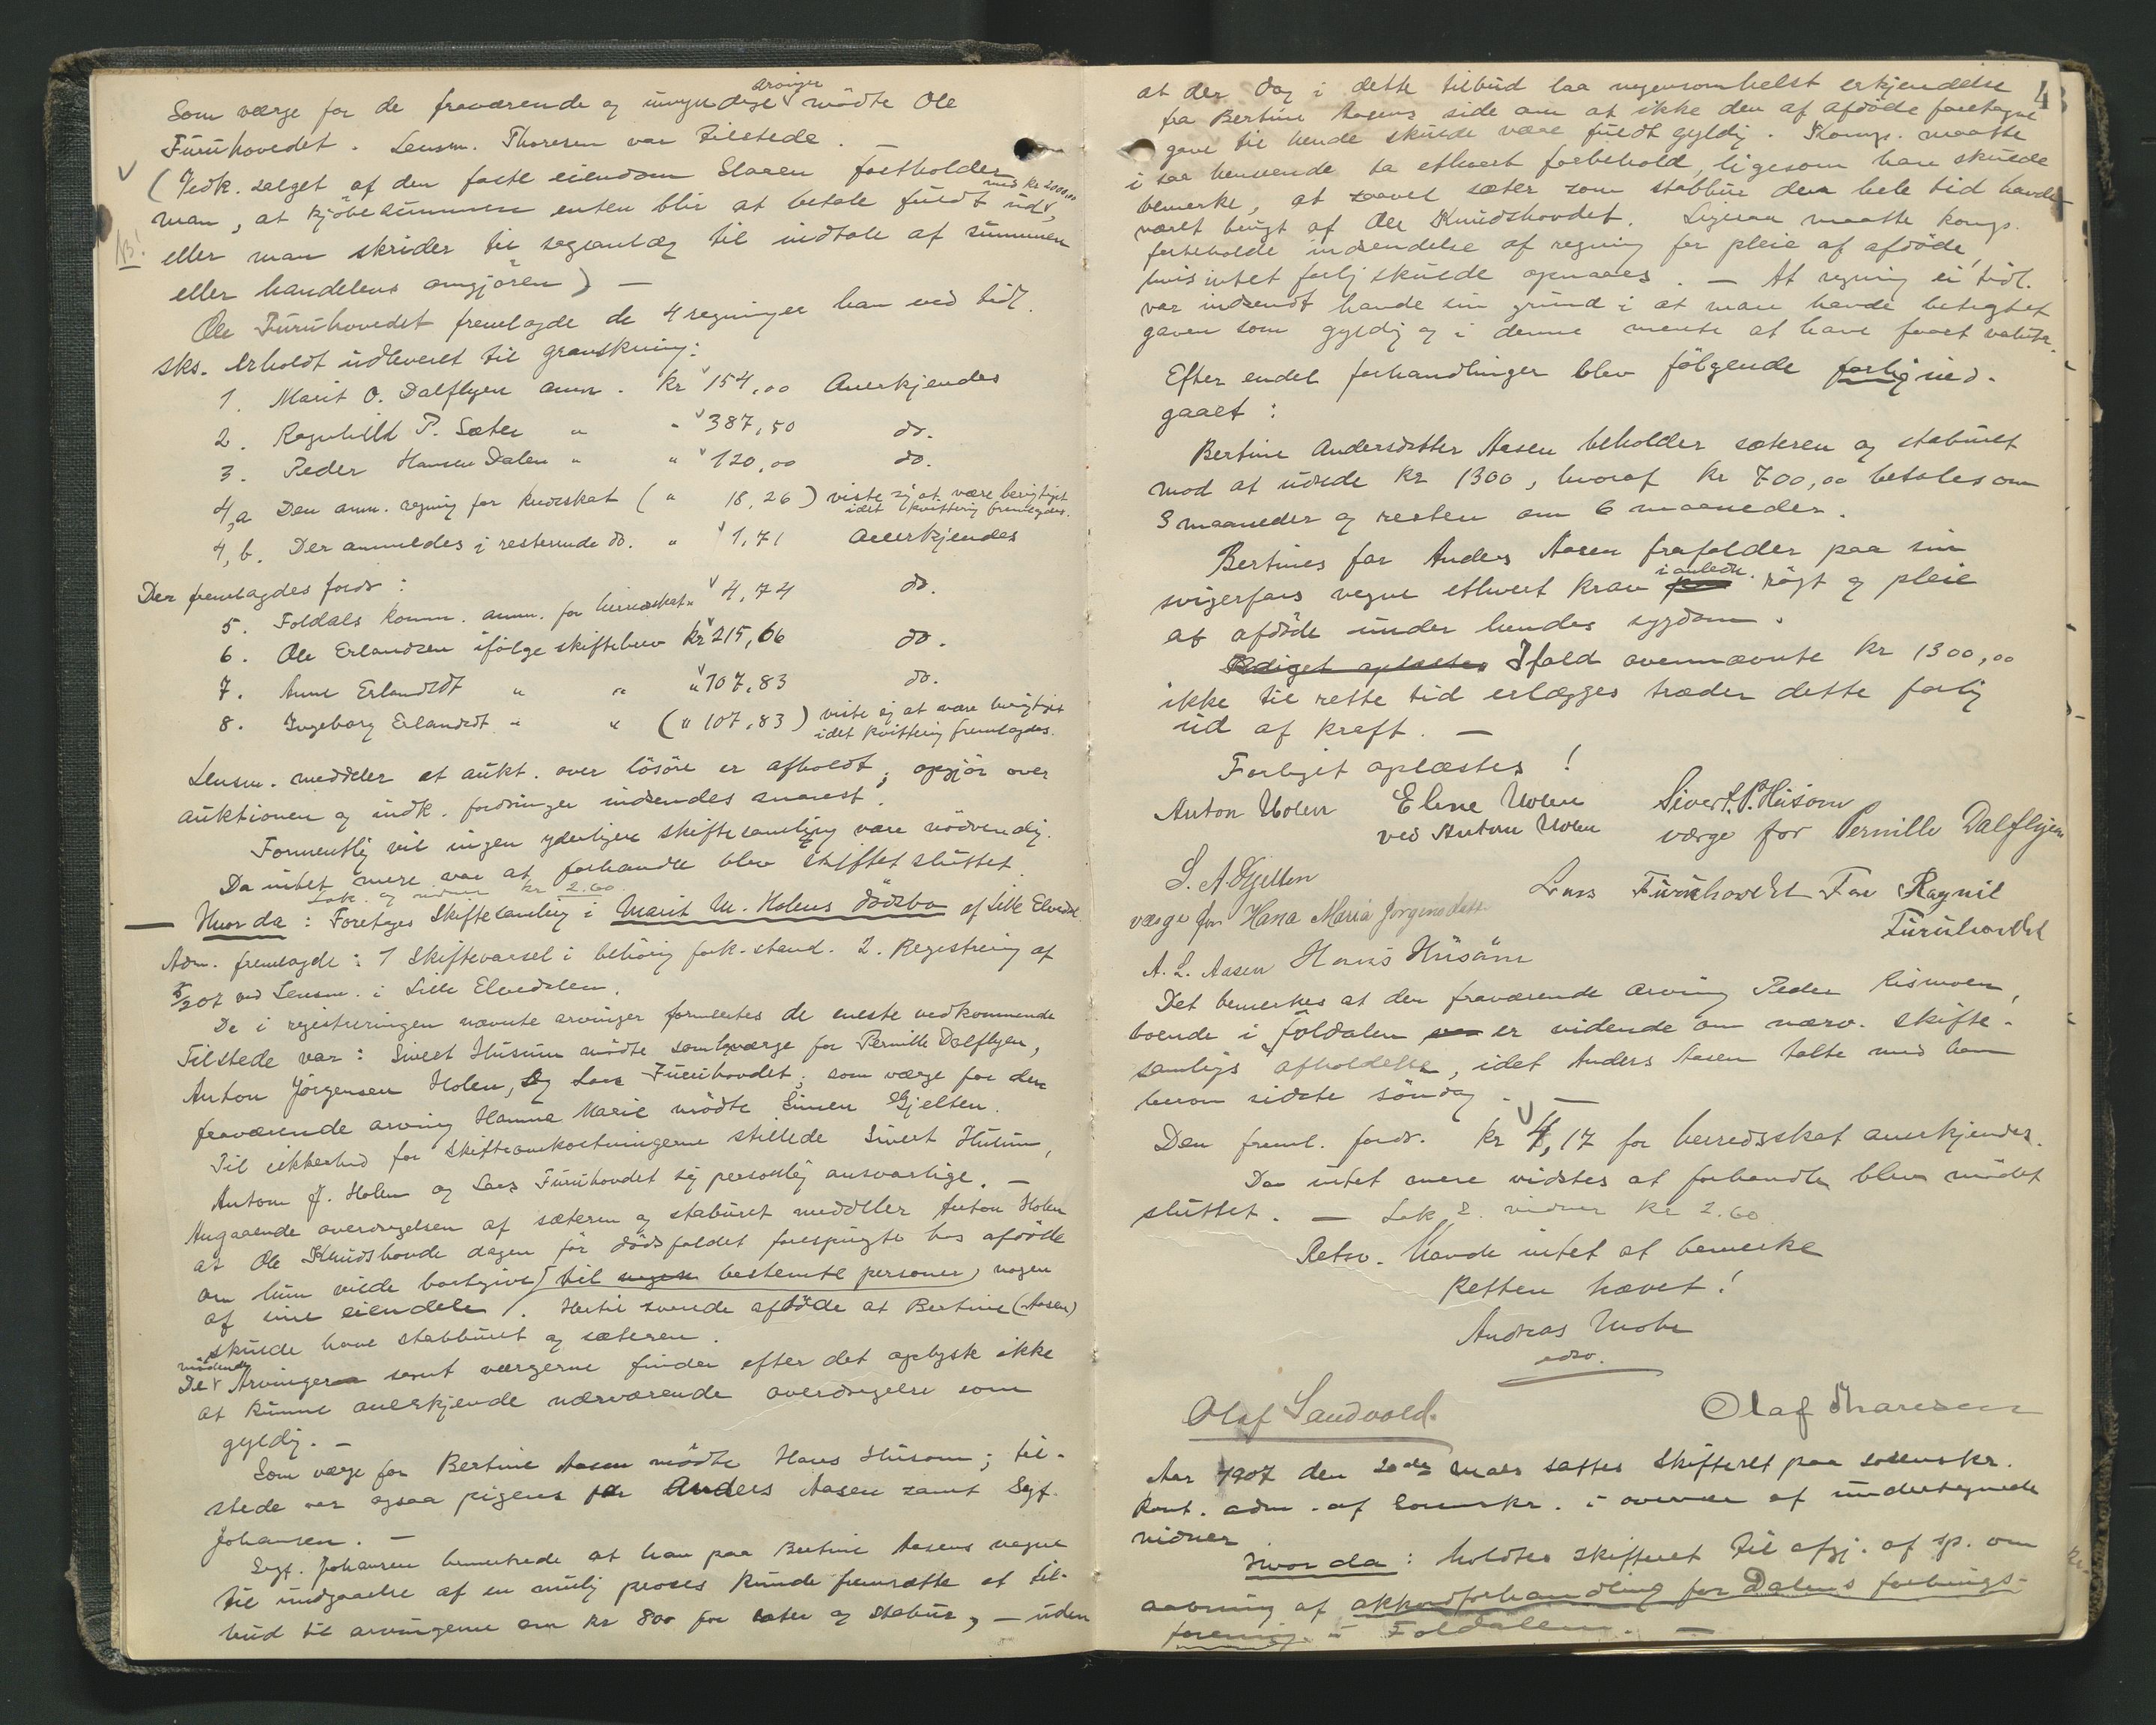 Som værge for de fraværende og umyndige arvinger mödte Ole
Furuhovedet. Lensm. Thoresen var tilstede.
(Vedk. salget af den faste eiendom Slaaen fastholder
man, at kjöbesummen enten blir at betale fuldt ud med kr 2000,00,
NB!
eller man skrider til søgsanlæg til indtale af summen
eller handelens omgjören) —
Ole Furuhovedet fremlagde de 4 regninger han ved tidl.
sks. erholdt udleveret til granskning:
1. Marit O. Dalflyen anm. kr 154,00 Anerkjendes
2. Ragnhild P. Sæter " " 387,50 do.
3. Peder Hansen Dalen " " 120,00 do.
4,a Den anm. regning for kudeskat ( " 18,26) viste sig at være berigtiget
idet kvittering fremlagdes.
4,b. Der anmeldes i resterende do. " 1,71 Anerkjendes
Der fremlagdes fordr:
5. Foldals komm. anm. for herredsskat " 4,74 do.
6. Ole Erlandsen ifölge skiftebrev kr 215,66 do.
7. Anne Erlandsdt " " " 107,83 do.
8. Ingeborg Erlandsdt " " (" 107,83) viste sig at være berigtiget
idet kvittering fremlagdes.
Lensm. meddeler at aukt. over lösöre er afholdt; opgjör over
auktionen og indk. fordringer indsendes snarest.
Formentlig vil ingen yderligere skiftesamling være nödvendig.
Da intet mere var at forhandle blev skiftet sluttet.
Lok. og vidner kr 2.60
— Hvor da: Foretoges Skiftesamling i Marit M. Holens dödsbo af Lille Elvedal
Adm. fremlagde: 1 Skiftevarsel i behörig fork. stand. 2. Registrering af
5/2 07 ved Lensm. i Lille Elvedalen.
De i registreringen nævnte arvinger formentes de eneste vedkommende
Tilstede var: Sivert Husum mödte som værge for Pernille Dalflyen,
Anton Jörgensen Holen, og Lars Furuhovdet; som værge for den
fraværende arving Hanna Marie mödte Simen Gjelten.
Til sikkerhed for skifteomkostningerne stillede Sivert Husum,
Anton J. Holen og Lars Furuhovdet sig personlig ansvarlige. —
Angaaende overdragelsen af sæteren og staburet meddeler Anton Holen
at Ole Knudshovde dagen för dödsfaldet forespurgte hos afdöde
om hun vilde bortgive (til nogen bestemte personer) nogen
af sine eiendele. Hertil svarede afdöde at Bertine (Aasen)
skulde have stabburet og sæteren.
De mödende Arvinger samt værgerne finder efter det oplyste ikke
at kunne anerkjende nærværende overdragelse som
gyldig. —
Som værge for Bertine Aasen mödte Hans Husom; til-
stede var ogsaa pigens far Anders Aasen samt Sagf.
Johansen. —
Sagf. Johansen bemerkede at han paa Bertine Aasens vegne
til undgaaelse af en mulig proces kunde fremsætte et til-
bud til arvingerne om kr 800 for sæter og stabur, — uden
4
at der dog i dette tilbud laa nogensomhelst erkjendelse
fra Bertine Aasens side om at ikke den af afdöde foretagne
gave til hende skulde være fuldt gyldig. Komp. maatte
i saa henseende ta ethvert forbehold, ligesom han skulde
bemerke, at saavel sæter som stabbur den hele tid havde
været brugt af Ole Knudshovdet. Ligesaa maatte komp.
forbeholde indsendelse af regning for pleie af afdöde,
hvis intet forlig skulde opnaaes. — At regning ei tidl.
var indsendt havde sin grund i at man havde betragtet
gaven som gyldig og i denne mente at have faaet valuta.
Efter endel forhandlinger blev fölgende forlig ind-
gaaet:
Bertine Andersdatter Aasen beholder sæteren og staburet
mod at udrede kr 1300, hvoraf kr 700,00 betales om
3 maaneder og resten om 6 maaneder.
Bertines far Anders Aasen frafalder paa sin
svigerfars vegne ethvert krav i anledn. rögt og pleie
af afdöde under hendes sygdom.
Ifald ovennævnte kr 1300,00
ikke til rette tid erlægges træder dette forlig
ud af kraft. —
Forliget oplæstes!
Anton Holen Eline Holen Sivert P. Husom
ved Anton Holen værge for Pernille Dalflyen
S. A. Gjelten Lars Furuhovdet For Ragnil
værge for Hana Maria Jørgensdatt Furuhovdet
A. L. Aasen Hans Husöm
Det bemerkes at den fraværende arving Peder Rismoen,
boende i Foldalen er vidende om nærv. skifte-
samlings afholdelse, idet Anders Aasen talte med ham
herom sidste söndag. —
Den freml. fordr. kr 4,17 for herredsskat anerkjendes.
Da intet mere vidstes at forhandle blev mödet
sluttet. — Lok. & vidner kr 2.60
Retsv. havde intet at bemerke
Retten hævet!
Andreas Mohr
edsv.
Olaf Sandvold. Olaf Thoresen
Aar 1907 den 20de Mars sattes Skifteret paa sorenskr.
kont. adm. af Sorenskr. i overvær af undertegnede
vidner
Hvor da: holdtes skifteret til afgj. af sp. om
aabning af akkordforhandling for Dalens forbrugs-
forening i Foldalen. —